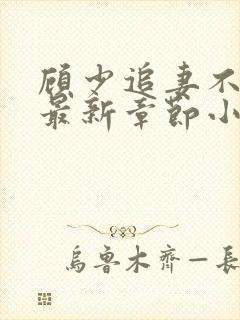 顾少追妻不
最新章节小
乌鲁木齐一长